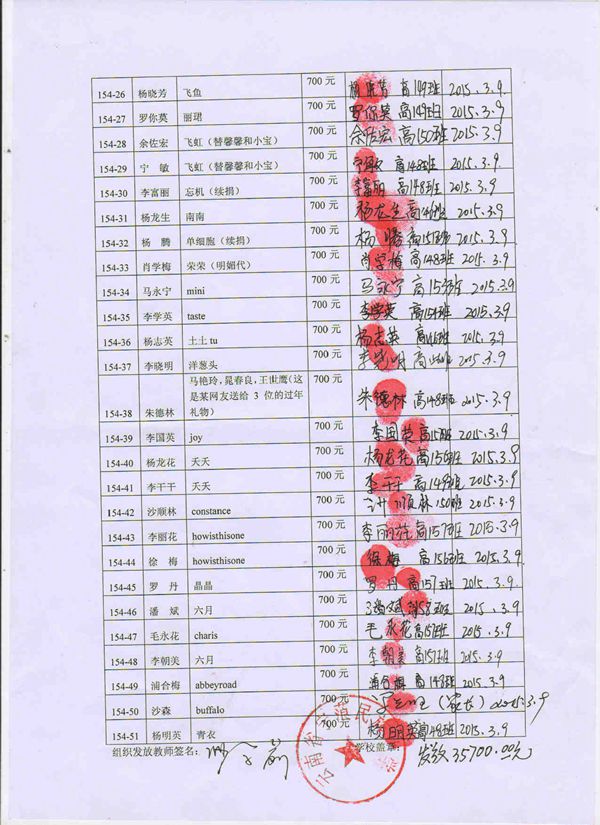 154-26 杨晓芳 飞鱼 700 元 杨晓芳 高149班 2015.3.9.
154-27 罗你莫 丽珺 700 元 罗你莫 高149班 2015.3.9
154-28 余佐宏 飞虹（替馨馨和小宝） 700 元 余佐宏 高150班 2015.3.9.
154-29 宁 敏 飞虹（替馨馨和小宝） 700 元 宁敏 高148班 2015.3.9.
154-30 李富丽 忘机（续捐） 700 元 李富丽 高148班 2015.3.9
154-31 杨龙生 南南 700 元 杨龙生 2015.3.9
154-32 杨 腾 单细胞（续捐） 700 元 杨腾 高157班 2015.3.9
154-33 肖学梅 荣荣（明媚代） 700 元 肖学梅 高148班 2015.3.9
154-34 马永宁 mini 700 元 马永宁 2015.3.9
154-35 李学英 taste 700 元 李学英 2015.3.9
154-36 杨志英 土土 tu 700 元 杨志英 2015.3.9
154-37 李晓明 洋葱头 700 元 李晓明 2015.3.9
154-38 朱德林 马艳玲，晁春良，王世鹰（这
是某网友送给 3 位的过年
礼物） 700 元 朱德林 高148班 2015.3.9
154-39 李国英 joy 700 元 2015.3.9
154-40 杨龙花 天天 700 元 杨龙花 高156班 2015.3.9
154-41 李干干 天天 700 元 李干干 高149班 2015.3.9
154-42 沙顺林 constance 700 元 顺林 150班 2015.3.9
154-43 李丽花 howisthisone 700 元 李丽花 高157班 2015.3.9
154-44 徐 梅 howisthisone 700 元 徐梅 高156班 2015.3.9
154-45 罗 丹 晶晶 700 元 罗丹 高157班 2015.3.9
154-46 潘 斌 六月 700 元 潘斌 2015.3.9
154-47 毛永花 charis 700 元 毛永花 高157班 2015.3.9
154-48 李朝美 六月 700 元 李朝美 高157班 2015.3.9
154-49 浦合梅 abbeyroad 700 元 浦合梅 高148班 2015.3.9
154-50 沙森 buffalo 700 元 （家长） 2015.3.9
154-51 杨明英 青衣 700 元 杨明英 高148班 2015.3.9
组织发放教师签名： 学校盖章： 发放35700.00元
云南省 民